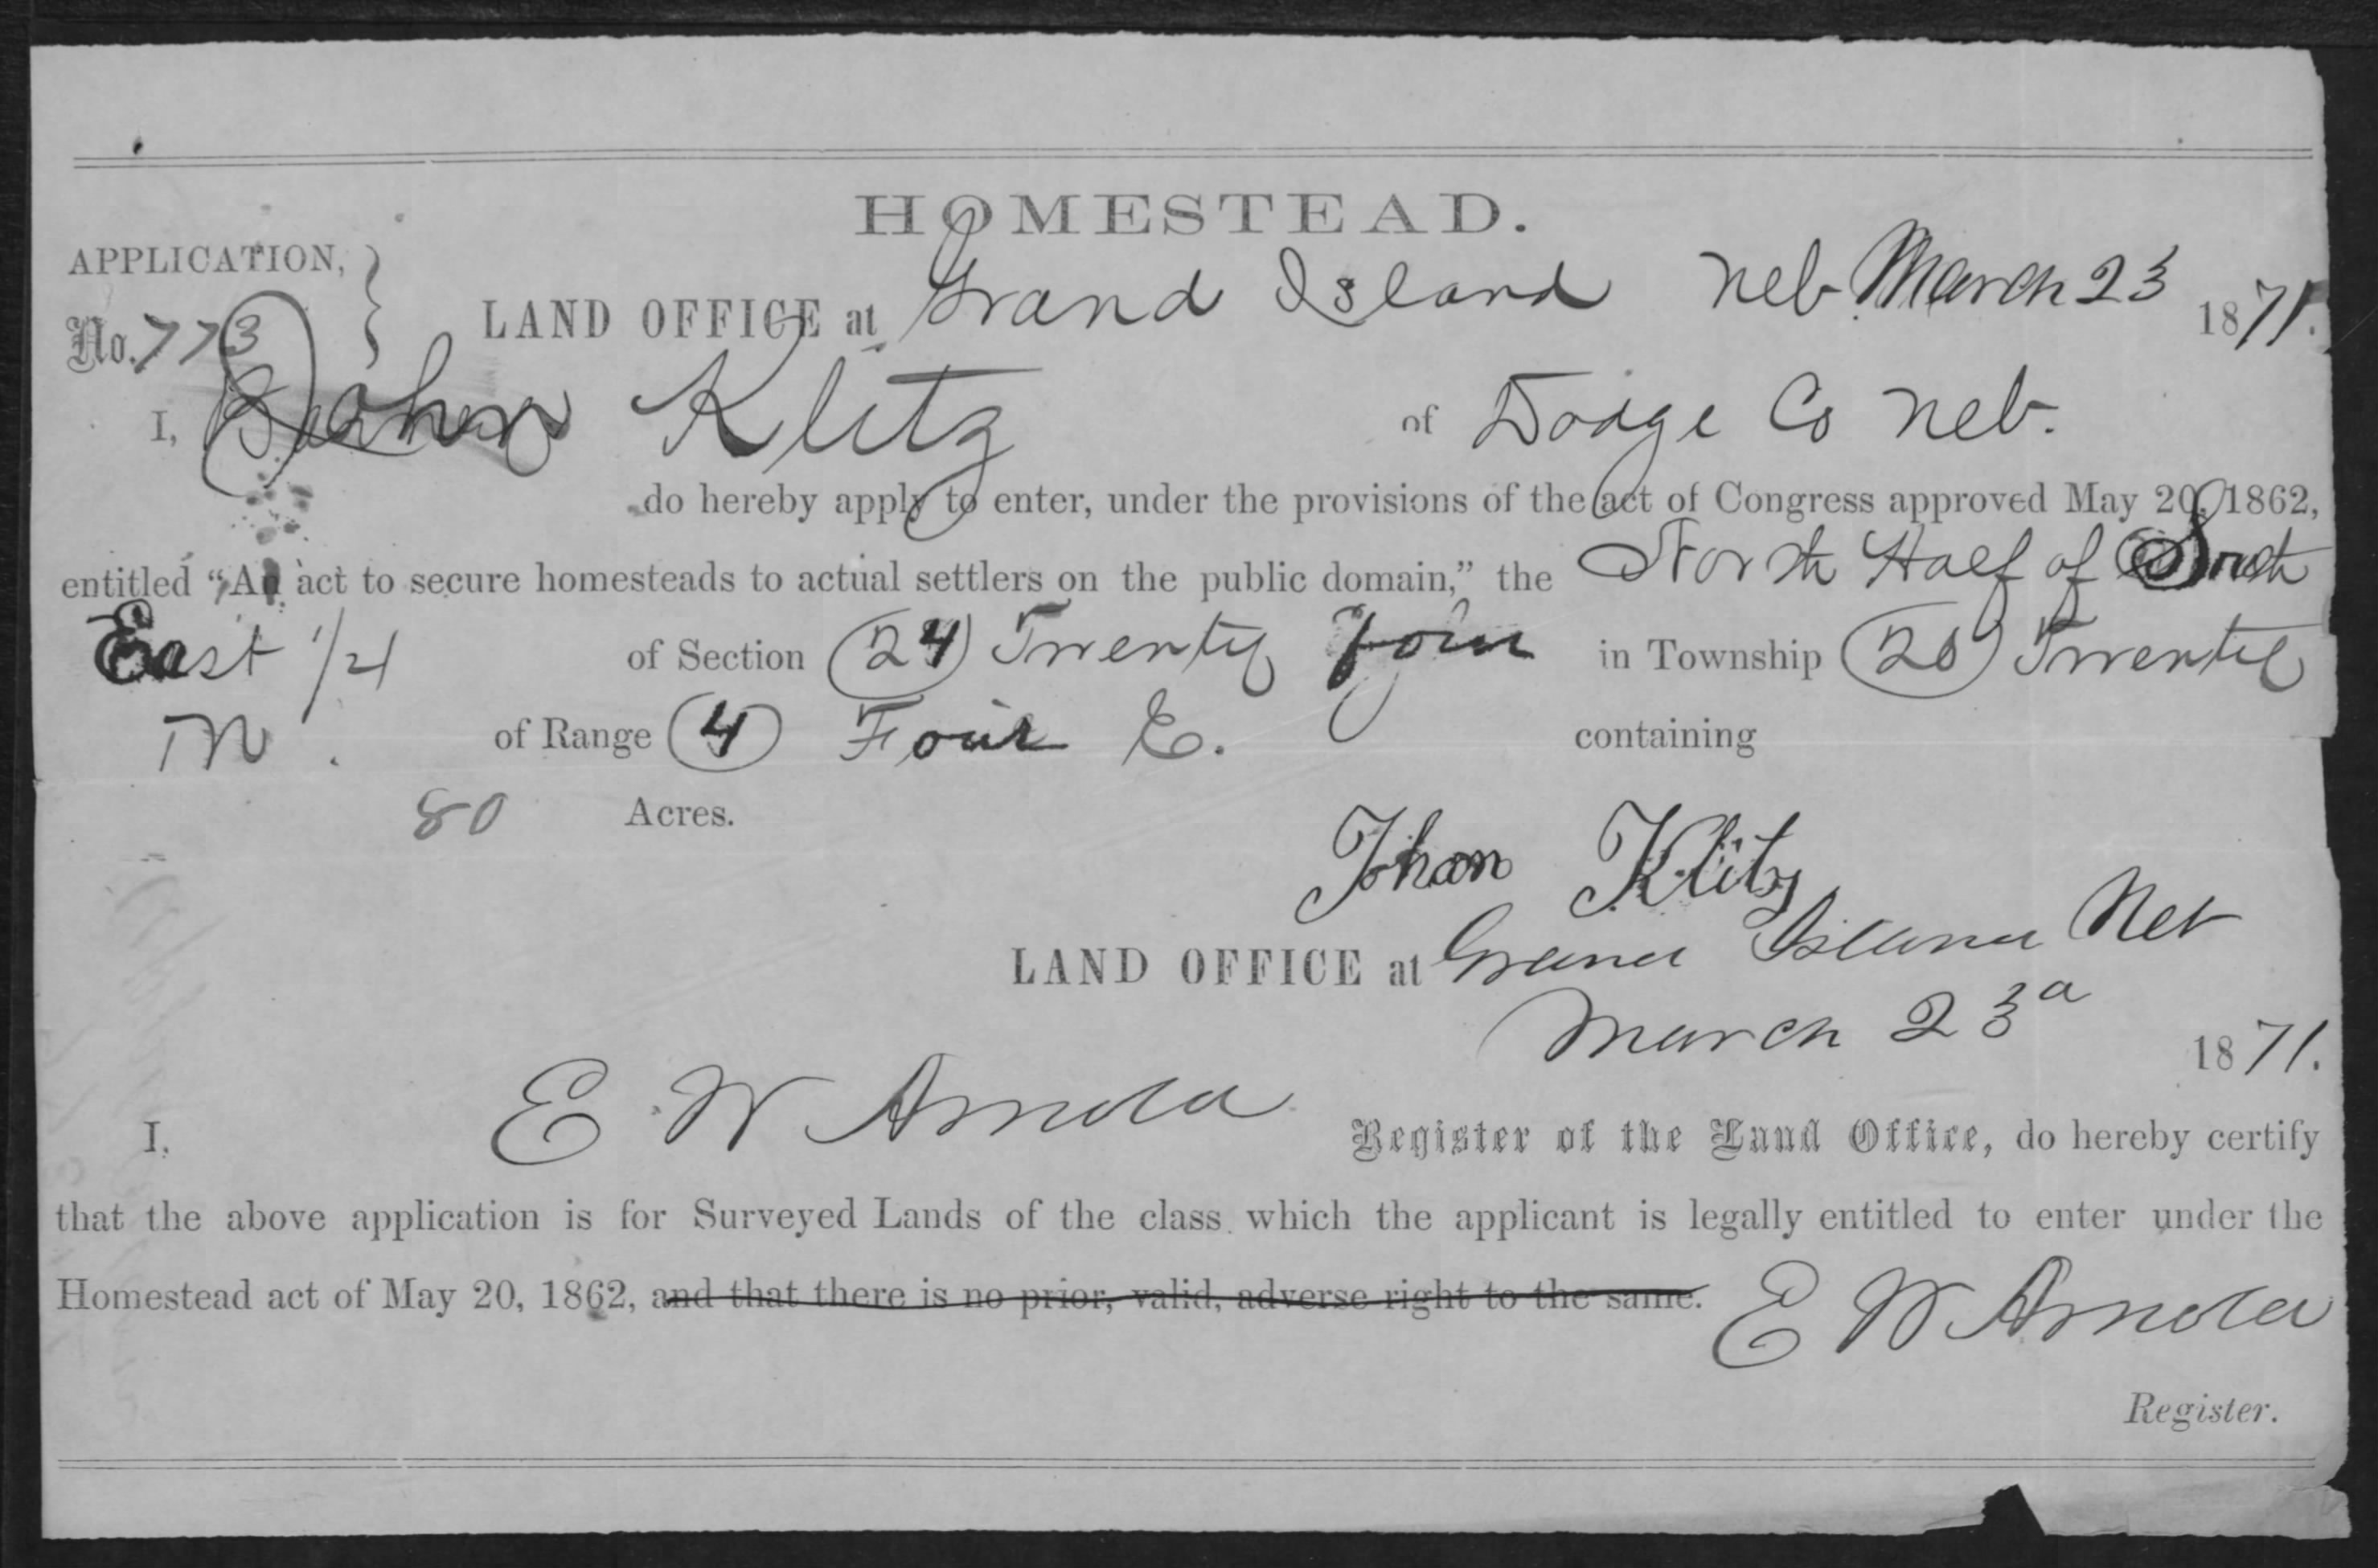 HOMESTEAD.
APPLICATION,
No. 773
LAND OFFICE at Grand Island Neb March 23 1871.
I, Johan Klitz of Dodge Co Neb.
do hereby apply to enter, under the provisions of the act of Congress approved May 20, 1862,
entitled “An act to secure homesteads to actual settlers on the public domain,” the North Half of South
East 1/4 of Section (24) Twenty four in Township (20) Twenty
N. of Range (4) Four E. containing
80 Acres.
Johan Klitz
LAND OFFICE at Grand Island Neb
March 23d 1871.
I, E W Arnold Register of the Land Office, do hereby certify
that the above application is for Surveyed Lands of the class which the applicant is legally entitled to enter under the
Homestead act of May 20, 1862, and that there is no prior, valid, adverse right to the same. E W Arnold
Register.